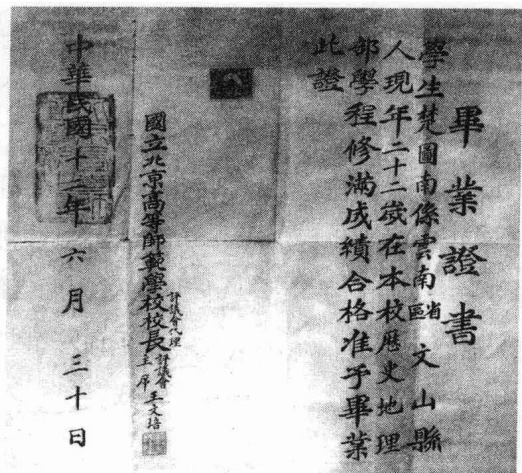 畢業證書
學生楚圖南係雲南省區文山縣
人現年二十二歲在本校歷史地理
部學程修滿成績合格准予畢業
此證
國立北京高等師範學校校長
評議會代理
評議會主席
王文培
中華民國十二年六月三十日